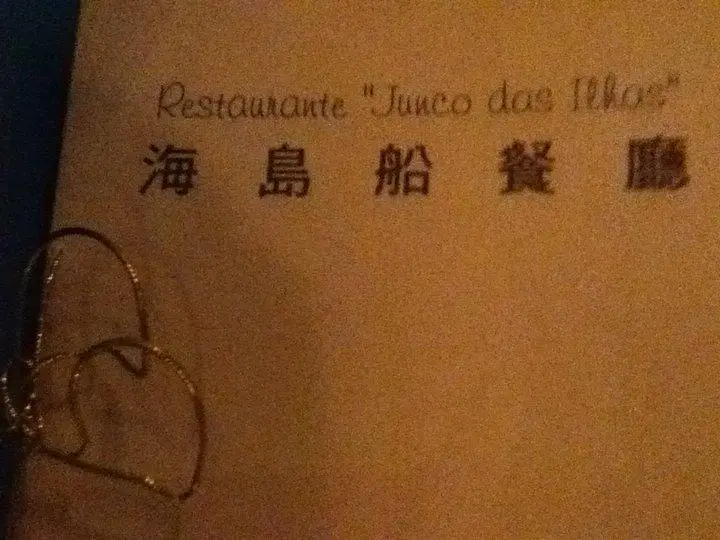 Restaurante "Junco das Ilhas"
海島船餐廳